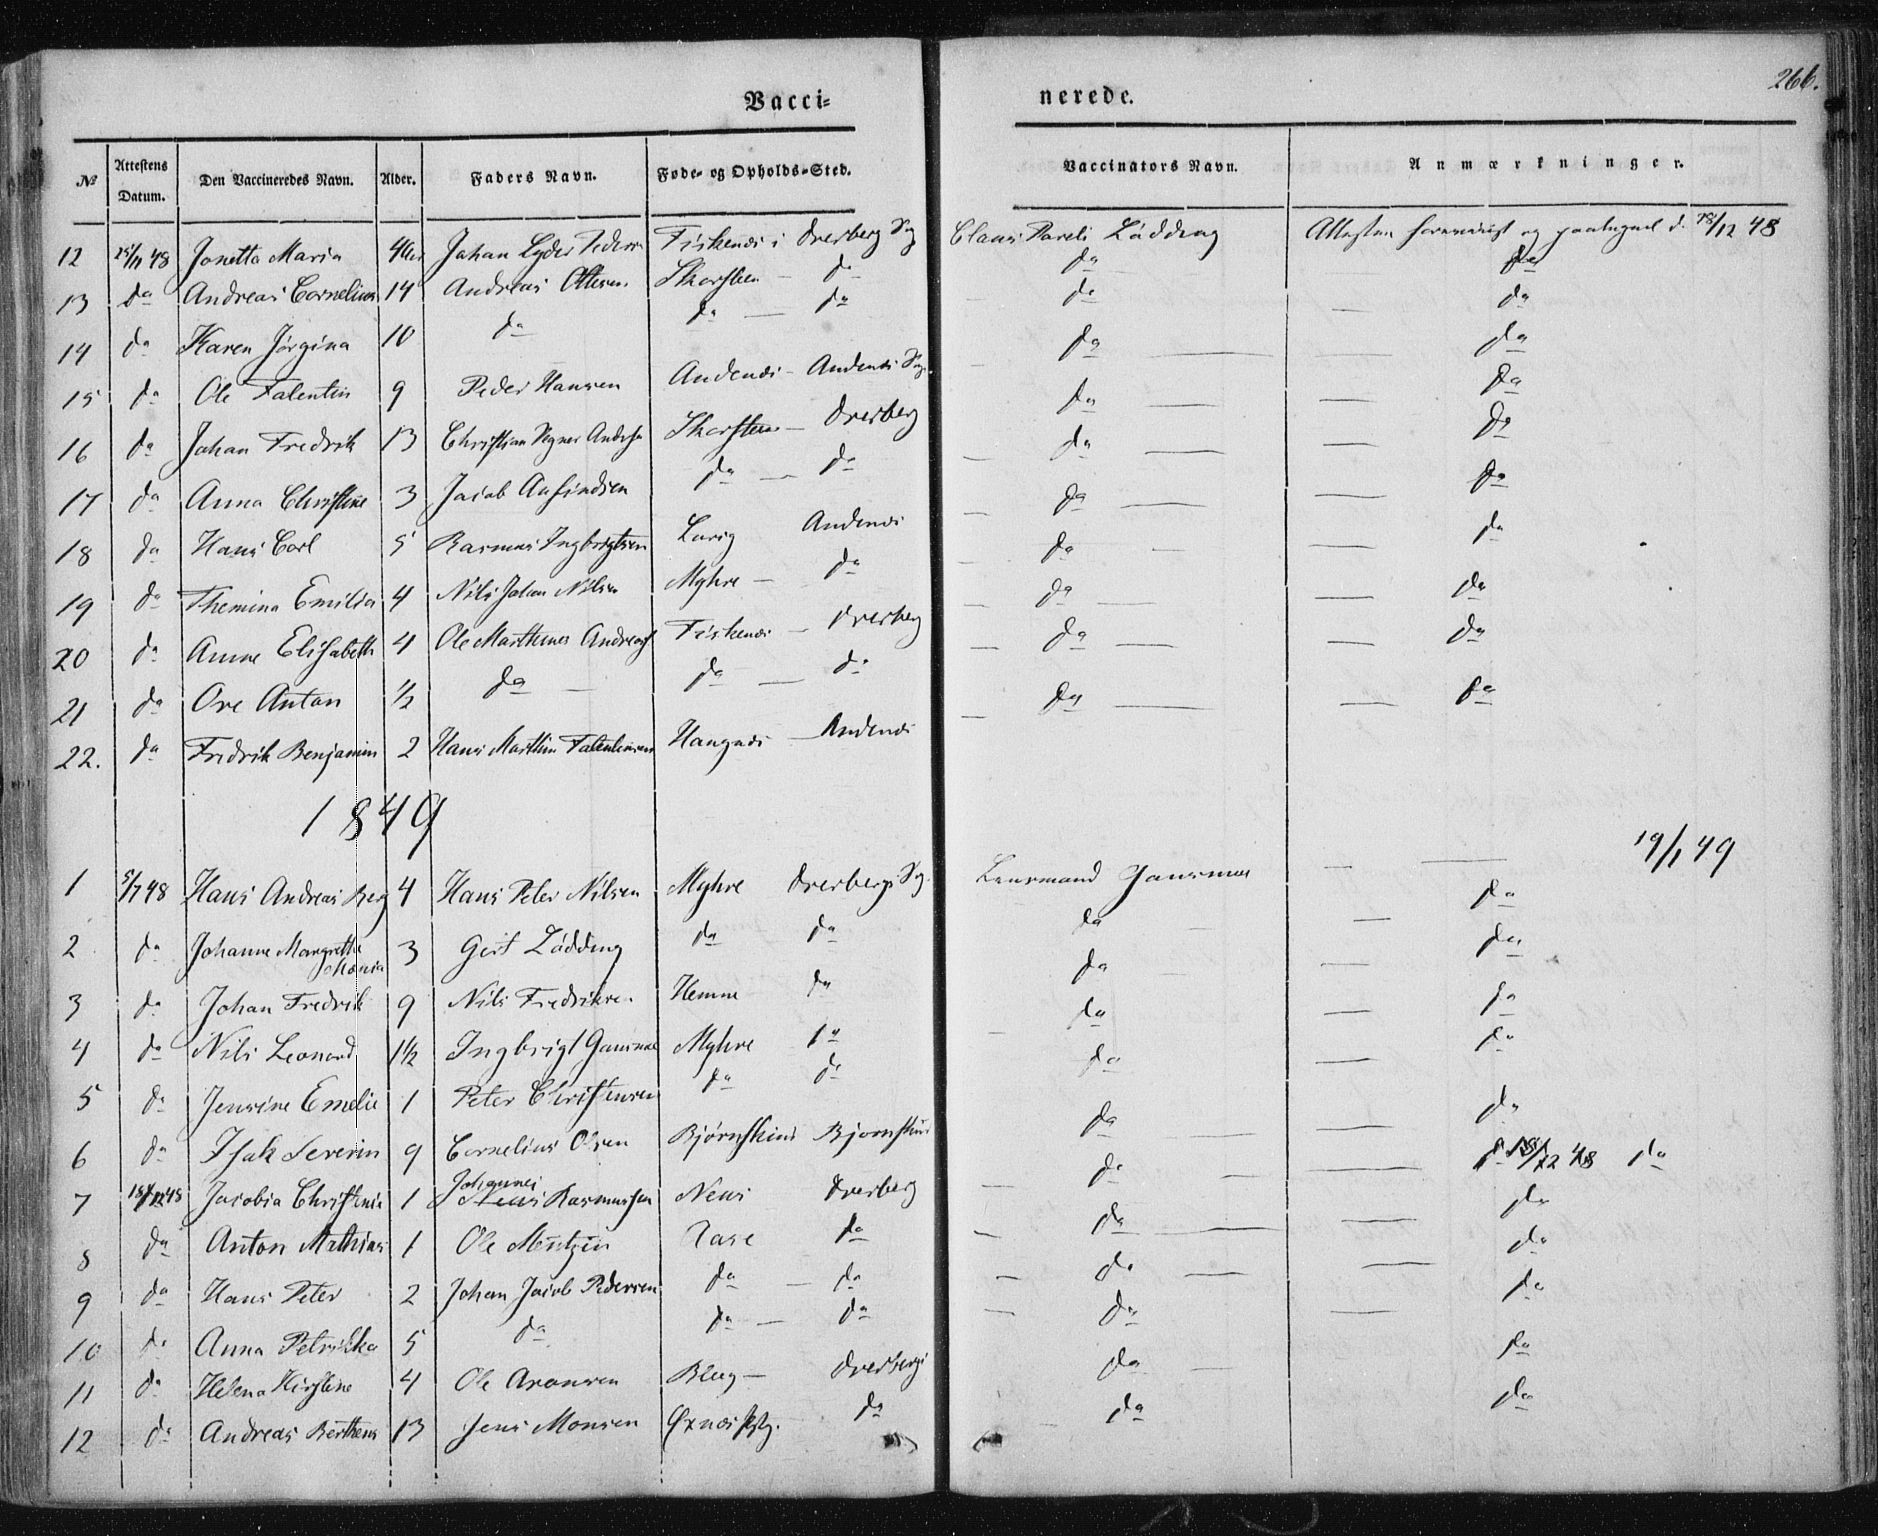 Vacci=
nerede.
266.
№ Attestens Datum. Den Vaccineredes Navn. Alder. Faders Navn. Føde- og Opholds-Sted. Vaccinators Navn. Anmærkninger.
12 25/11 48 Jonetta Maria Johan Lyder Peders Fiskenæs i Dverberg Sg Claus Pareli Lødding Attesten foreviist og paategnet d. 18/12 48
13 do Andreas Cornelius 14 Andreas Ottesen Skarsteen — do do do
14 do Karen Jørgina 10 do do — do do — do
15 do Ole Falentin 9 Peder Hansen Andenæs — Andenæs Sg. do — do
16 do Johan Fredrik 13 Christian Wegner Anders Skarsteen — Dverberg do — do
17 do Anna Christine 3 Jacob Ansindsen do — do do — do
18 do Hans Carl 5 Rasmus Ingbrigtsen Andenæs do — do
19 do Themina Emilia 4 Nils Johan Nilsen Myhre — do do — do
20 do Anne Elisabeth 4 Ole Marthinus Andreas Fiskenæs — Dverberg do — do
21 do Ove Anton 1/2 do — do — do do — do
22. do Fredrik Benjamin 2 Hans Marthin Falentinsen Haugnæs — Andenæs do — do
1849
1 5/7 48 Hans Andreas Berg 4 Hans Peter Nilsen Myhre Dverbergs Sg. Lensmand Gausmae — 19/1 49
2 do Johanne Margrethe Maria 3 Gert Lødding do do do do
3 do Johan Fredrik 9 Nils Fredriksen Hemne do do — do
4 do Nils Leonard 1 1/2 Ingbrigt Gausmae Myhre do do — do
5 do Jensine Emelie 1 Peter Christensen do do do — do
6 do Isak Severin 9 Cornelius Olsen Bjørnskind Bjørnskind do — do
7 18/12 48 Jacobia Christenia 1 Johannes Rasmussen Næss Dverberg do — do 18/12 48 do
8 do Anton Mathias 1 Ole Mentzen Aase do do — do
9 do Hans Peter 2 Johan Jacob Pedersen do — do do — do
10 do Anna Petrikka 5 do do — do do — do
11 do Helena Kirstine 4 Ole Aronsen Bleg — Dverbergs do — do
12 do Andreas Bertheus 13 Jens Monsen Øxnæs Pstg. do do do